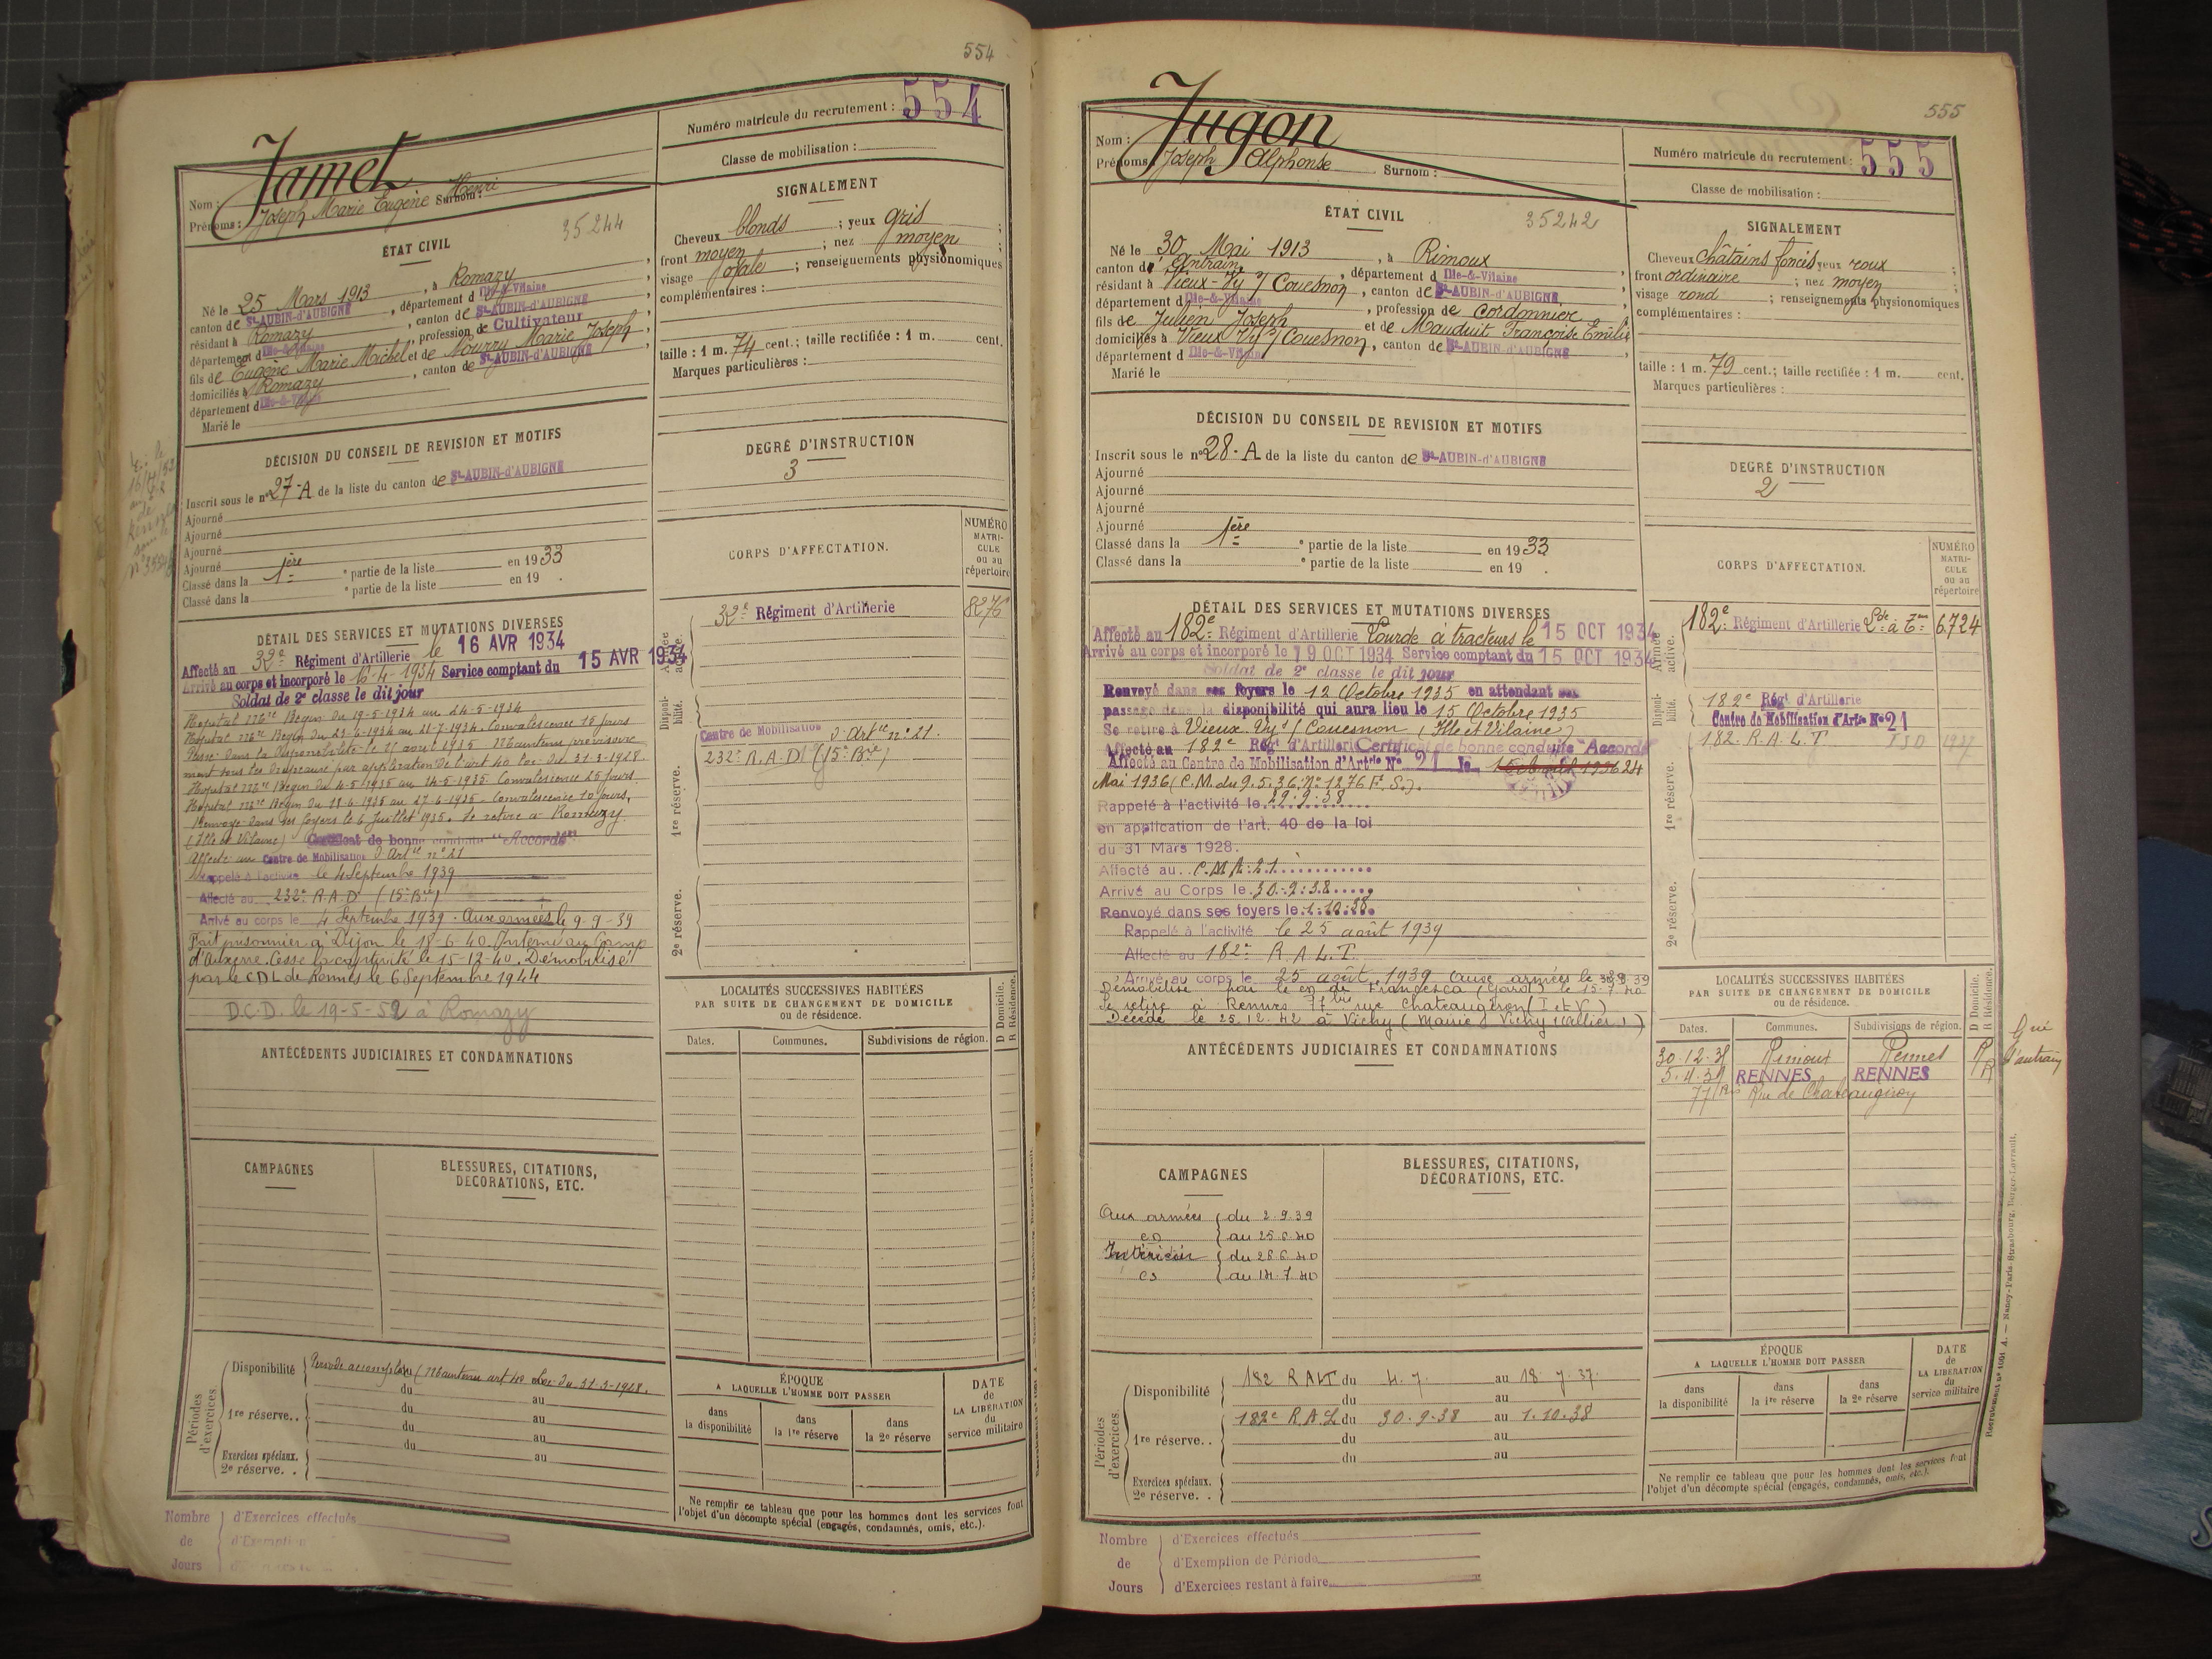 554
Numéro matricule du recrutement : 554
Classe de mobilisation :
Jamet
Nom :
Prénoms : Joseph Marie Eugène Henri Surnom :
ÉTAT CIVIL
35244
Né le 25 Mars 1913, à Romazy,
canton de St-AUBIN-d'AUBIGNE, département d Ille-&-Vilaine
résidant à Romazy, canton de St-AUBIN-d'AUBIGNE,
département d Ille-&-Vilaine, profession de Cultivateur,
fils de Eugène Marie Michel et de Nourry Marie Joseph,
domiciliés à Romazy, canton de St-AUBIN-d'AUBIGNE
département d Ille-&-Vilaine
Marié le
SIGNALEMENT
Cheveux blonds ; yeux gris ;
front moyen ; nez moyen ;
visage ovale ; renseignements physionomiques
complémentaires :
taille : 1 m. 74 cent.; taille rectifiée : 1 m. cent.
Marques particulières :
DÉCISION DU CONSEIL DE REVISION ET MOTIFS
Inscrit sous le n° 27-A de la liste du canton de St-AUBIN-d'AUBIGNE
Ajourné
Ajourné
Ajourné
Ajourné
Classé dans la 1ère e partie de la liste en 1933
Classé dans la e partie de la liste en 19 .
DEGRÉ D'INSTRUCTION
3
CORPS D'AFFECTATION.
NUMÉRO MATRI-CULE ou au répertoire
Armée active.
32e Régiment d'Artillerie 8276
Disponibilité.
Centre de Mobilisation d'Artie n° 21.
232e R.A.D (15e Bie)
1re réserve.
2e réserve.
DÉTAIL DES SERVICES ET MUTATIONS DIVERSES
Affecté au 32e Régiment d'Artillerie le 16 AVR 1934
Arrivé au corps et incorporé le 16-4-1934 Service comptant du 15 AVR 1934
Soldat de 2e classe le dit jour
Hôpital Mre Begin du 19-5-1934 au 24-5-1934
Hôpital Mre Begin du 23-6-1934 au 21-7-1934. Convalescence 15 jours
Passé dans la disponibilité le 15 avril 1935 Maintenu provisoire
ment sous les drapeaux par application de l'art 40 loi du 31-3-1928.
Hôpital Mre Begin du 4-5-1935 au 24-5-1935 Convalescence 25 jours
Hôpital Mre Begin du 18-6-1935 au 27-6-1935 - Convalescence 10 jours.
Renvoyé dans ses foyers le 6 Juillet 1935. Se retire à Romazy
(Ille et Vilaine) Certificat de bonne conduite "Accordé"
Affecté au Centre de Mobilisation d'Artie n° 21
Rappelé à l'activité le 4 Septembre 1939
Affecté au 232e R.A.D (15e Bie)
Arrivé au corps le 4 Septembre 1939. Aux armées le 9-9-39
Fait prisonnier à Dijon le 18-6-40. Interné au Camp
d'Auxerre. Cesse la captivité le 15-12-40. Démobilisé
par le CDL de Rennes le 6 Septembre 1944
D.C.D. le 19-5-52 à Romazy
ANTÉCÉDENTS JUDICIAIRES ET CONDAMNATIONS
LOCALITÉS SUCCESSIVES HABITÉES
PAR SUITE DE CHANGEMENT DE DOMICILE
ou de résidence.
D Domicile. R Résidence.
Dates. Communes. Subdivisions de région.
CAMPAGNES
BLESSURES, CITATIONS, DÉCORATIONS, ETC.
Périodes d'exercices.
Disponibilité Période accomplie (Maintenu art 40 Loi du 31-3-1928.
du au
1re réserve.. du au
du au
du au
Exercices spéciaux.
2e réserve. .
ÉPOQUE
A LAQUELLE L'HOMME DOIT PASSER
dans la disponibilité
dans la 1re réserve
dans la 2e réserve
DATE de LA LIBÉRATION du service militaire
Ne remplir ce tableau que pour les hommes dont les services font
l'objet d'un décompte spécial (engagés, condamnés, omis, etc.).
Nombre de Jours
d'Exercices effectués
d'Exemption
555
Numéro matricule du recrutement : 555
Classe de mobilisation :
Jugon
Nom :
Prénoms : Joseph Alphonse Surnom :
ÉTAT CIVIL
35242
Né le 30 Mai 1913, à Rimoux
canton d'Antrain, département d Ille-&-Vilaine
résidant à Vieux-Vy s/ Couesnon, canton de St-AUBIN-d'AUBIGNE,
département d Ille-&-Vilaine, profession de cordonnier
fils de Julien Joseph et de Mauduit Françoise Emilie
domiciliés à Vieux Vy s/ Couesnon, canton de St-AUBIN-d'AUBIGNE,
département d Ille-&-Vilaine
Marié le
SIGNALEMENT
Cheveux châtains foncés yeux roux ;
front ordinaire ; nez moyen ;
visage rond ; renseignements physionomiques
complémentaires :
taille : 1 m. 79 cent.; taille rectifiée : 1 m. cent.
Marques particulières :
DÉCISION DU CONSEIL DE REVISION ET MOTIFS
Inscrit sous le n° 28-A de la liste du canton de St-AUBIN-d'AUBIGNE
Ajourné
Ajourné
Ajourné
Ajourné
Classé dans la 1ère e partie de la liste en 1933
Classé dans la e partie de la liste en 19 .
DEGRÉ D'INSTRUCTION
2
CORPS D'AFFECTATION.
NUMÉRO MATRI-CULE ou au répertoire
Armée active.
182e Régiment d'Artillerie Lde à Trs 6724
Disponibilité.
182e Régt d'Artillerie
Centre de Mobilisation d'Artie N° 21
182. R.A.L.T 1937
1re réserve.
2e réserve.
DÉTAIL DES SERVICES ET MUTATIONS DIVERSES
Affecté au 182e Régiment d'Artillerie Lourde à tracteurs le 15 OCT 1934
Arrivé au corps et incorporé le 19 OCT 1934 Service comptant du 15 OCT 1934
Soldat de 2e classe le dit jour
Renvoyé dans ses foyers le 12 Octobre 1935 en attendant son
passage dans la disponibilité qui aura lieu le 15 Octobre 1935
Se retire à Vieux Vy s/ Couesnon (Ille et Vilaine)
Affecté au 182e Régt d'Artillerie Certificat de bonne conduite "Accordé"
Affecté au Centre de Mobilisation d'Artrie N° 21 le 24
Mai 1936 (C.M. du 9.5.36 N° 1276 F.S.).
Rappelé à l'activité le 29.9.38
en application de l'art. 40 de la loi
du 31 Mars 1928.
Affecté au C.M.A. 21
Arrivé au Corps le 30.9.38
Renvoyé dans ses foyers le 1.10.38
Rappelé à l'activité le 25 août 1939
Affecté au 182e R.A.L.T.
Arrivé au corps le 25 août 1939 aux armées le
Démobilisé par le (Gard) le 15.7.40
Se retire à Rennes 77 bis rue Chateaugiron (I et V)
Décédé le 25.12.42 à Vichy (Mairie Vichy (Allier))
ANTÉCÉDENTS JUDICIAIRES ET CONDAMNATIONS
LOCALITÉS SUCCESSIVES HABITÉES
PAR SUITE DE CHANGEMENT DE DOMICILE
ou de résidence.
D Domicile. R Résidence.
Dates. Communes. Subdivisions de région.
30.12.35 Rimoux Rennes R
RENNES RENNES R
77 bis Rue de Chateaugiron
CAMPAGNES
Aux armées du 2.9.39
co au 25.6.40
Intérieur du 26.6.40
co au 14.7.40
BLESSURES, CITATIONS, DÉCORATIONS, ETC.
Périodes d'exercices.
Disponibilité 182 RALT du 4.7. au 18.7.37.
du au
182e R.A.L du 30.9.38 au 1.10.38
1re réserve.. du au
du au
Exercices spéciaux.
2e réserve. .
ÉPOQUE
A LAQUELLE L'HOMME DOIT PASSER
dans la disponibilité
dans la 1re réserve
dans la 2e réserve
DATE de LA LIBÉRATION du service militaire
Ne remplir ce tableau que pour les hommes dont les services font
l'objet d'un décompte spécial (engagés, condamnés, omis, etc.).
Nombre de Jours
d'Exercices effectués
d'Exemption de Période
d'Exercices restant à faire
Recrutement n° 1091 A. — Nancy-Paris-Strasbourg, Berger-Levrault.